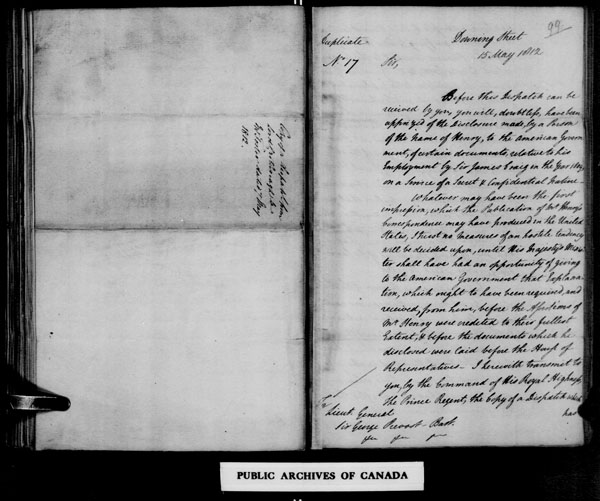 99.
Duplicate
Downing Street
15 May 1812
No 17
Sir,
Before this Dispatch can be
received by you, you will, doubtless, have been
apprized of the Disclosure made, by a Person
of the name of Henry, to the American Govern-
ment, of certain documents, relative to his
Employment by Sir James Craig in the Year 1809,
on a Service of a Secret & Confidential Nature.
Whatever may have been the first
impression, which the Publication of Mr Henry's
Correspondence may have produced in the United
States, I trust no Measures of an hostile tendency
will be decided upon, until His Majesty's Minis-
ter shall have had an opportunity of giving
to the American Government that Explana-
tion, which ought to have been required, and
received, from him, before the Assertions of
Mr Henry were credited to their fullest
Extent, & before the documents which he
disclosed were laid before the House of
Representatives. I herewith transmit to
you, by the Command of His Royal Highness
the Prince Regent, the Copy of a Dispatch which
has
Lieut. General
Sir George Prevost Bart.
Copy of a Dispatch from
Lord
1812.
PUBLIC ARCHIVES OF CANADA